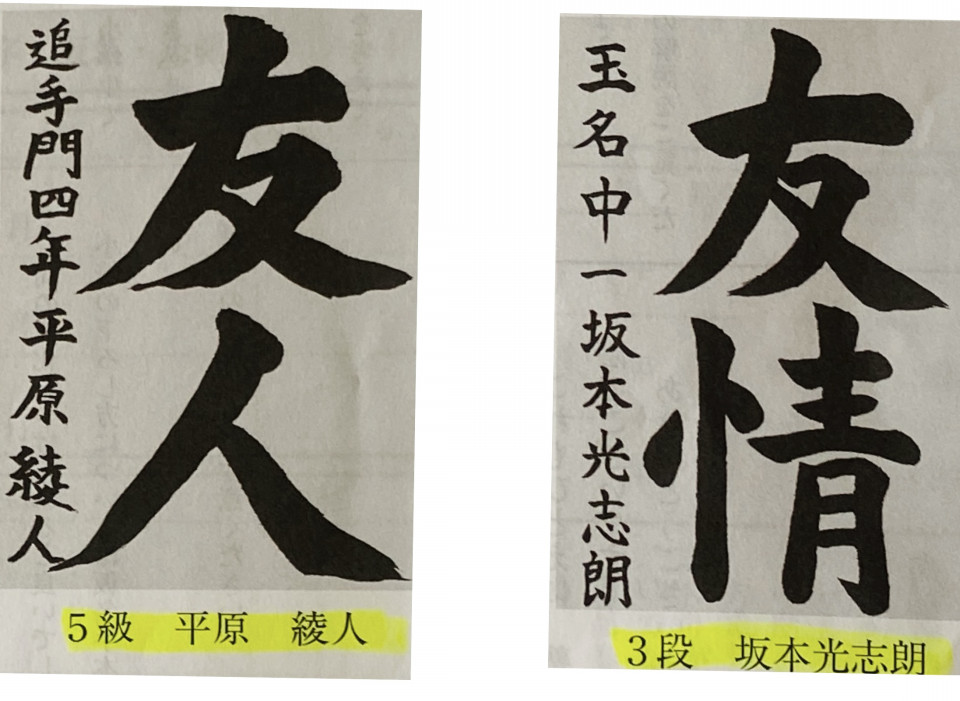 友人
追手門四年平原綾人
５級　平原　綾人
友情
玉名中一坂本光志朗
３段　坂本光志朗